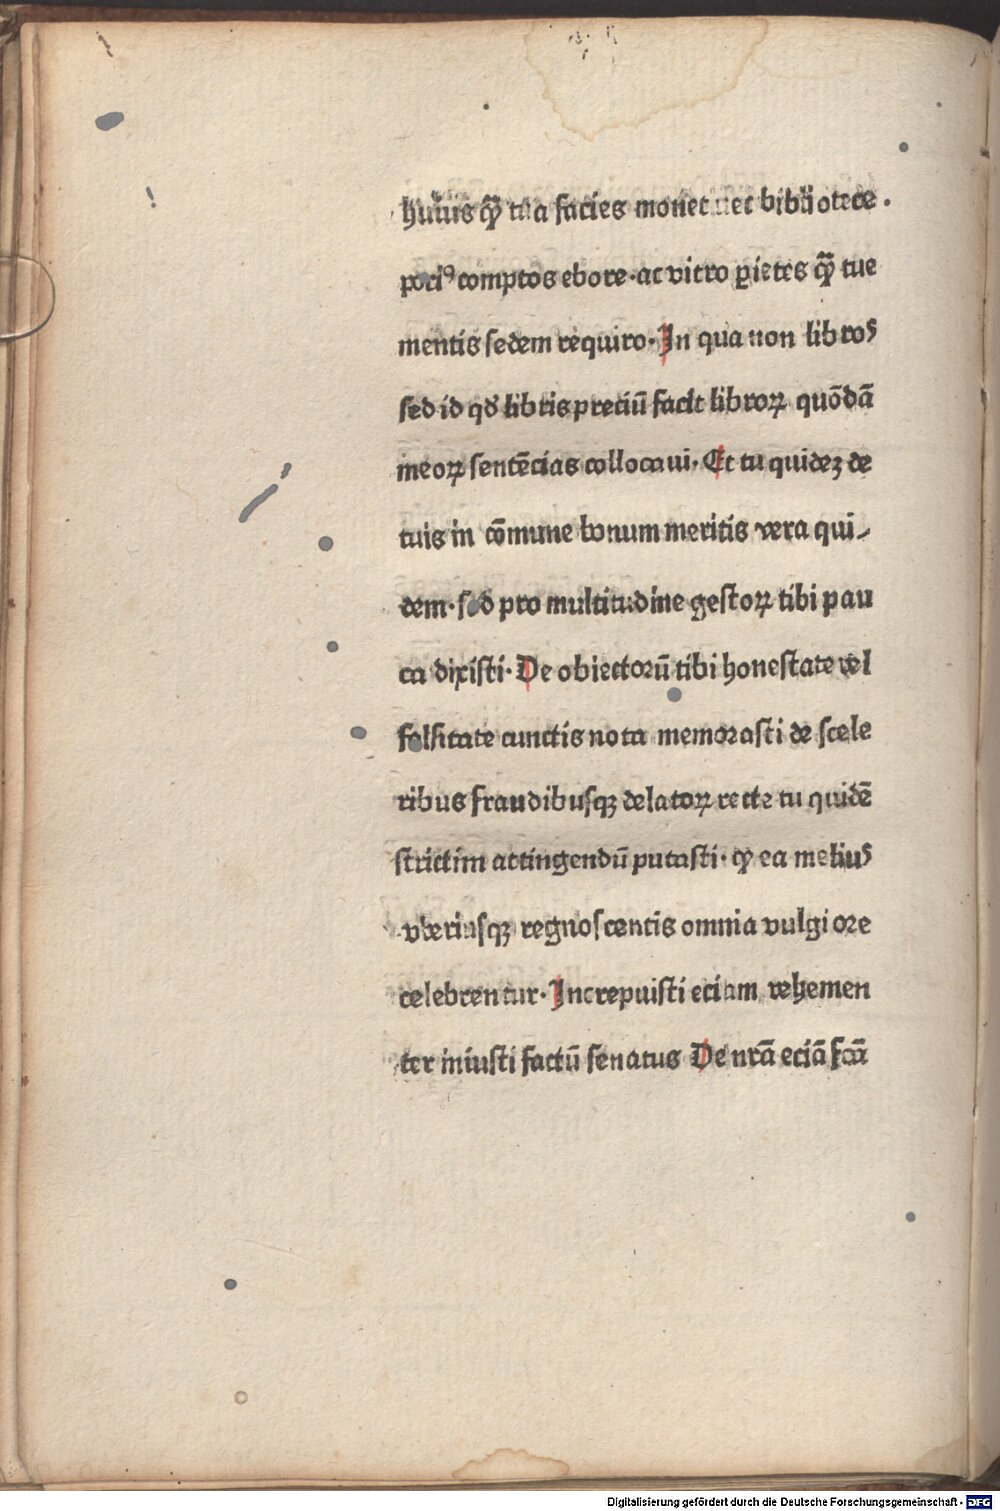 huius qͣ̃ tua facies monet nec bibliotece.
poci⁹ comptos ebore·ac vitro ꝑietes qͣ̃ tue
mentis sedem requiro· In qua non libros
sed id qd̕ libris preciū facit libroꝝ quōdā
meoꝝ sentēcias collocaui· Et tu quidez de
tuis in cōmune bonum meritis vera qui⸗
dem· sed pro multitudine gestoꝝ tibi pau
ca dixisti· De obiectorū tibi honestate vel
falsitate cunctis nota memorasti de scele
ribus fraudibusqꝫ delatoꝝ recte tu quidē
strictim attingendū putasti· ꝙ ea melius
vberiusqꝫ regnoscentis omnia vulgi ore
celebrentur· Increpuisti eciam vehemen
ter iniusti factū senatus De nrā eciā
Digitalisierung gefördert durch die Deutsche Forschungsgemeinschaft - DFG